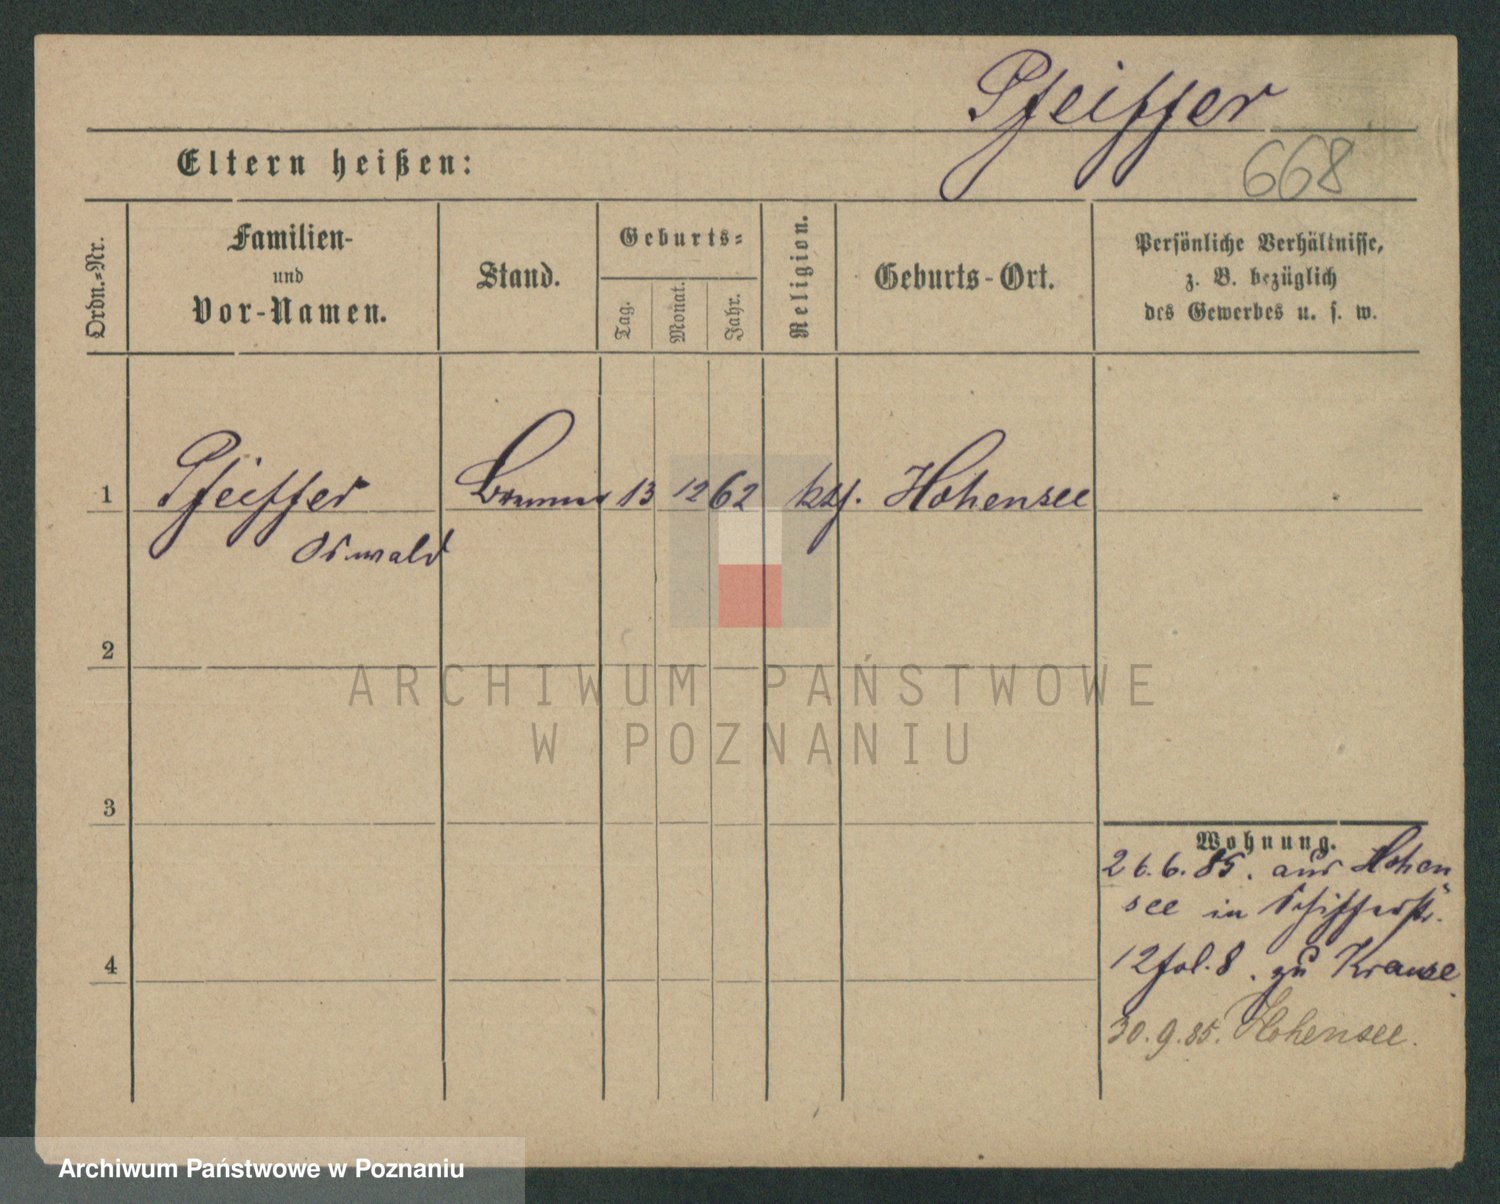 Pfeiffer
668
Eltern heißen:
Ordn.-Nr.
Familien-
und
Vor-Namen.
Stand.
Geburts-
Tag.
Monat.
Jahr.
Religion.
Geburts-Ort.
Persönliche Verhältnisse,
z. B. bezüglich
des Gewerbes u. s. w.
1 Pfeiffer Brenner 13 12 62 Hohensee
Oswald
2
3
4
Wohnung.
26.6.85. aus Hohen
see in Schifferstr.
12 fol. 8. zu Krause
30.9.85. Hohensee.
ARCHIWUM PAŃSTWOWE
W POZNANIU
Archiwum Państwowe w Poznaniu